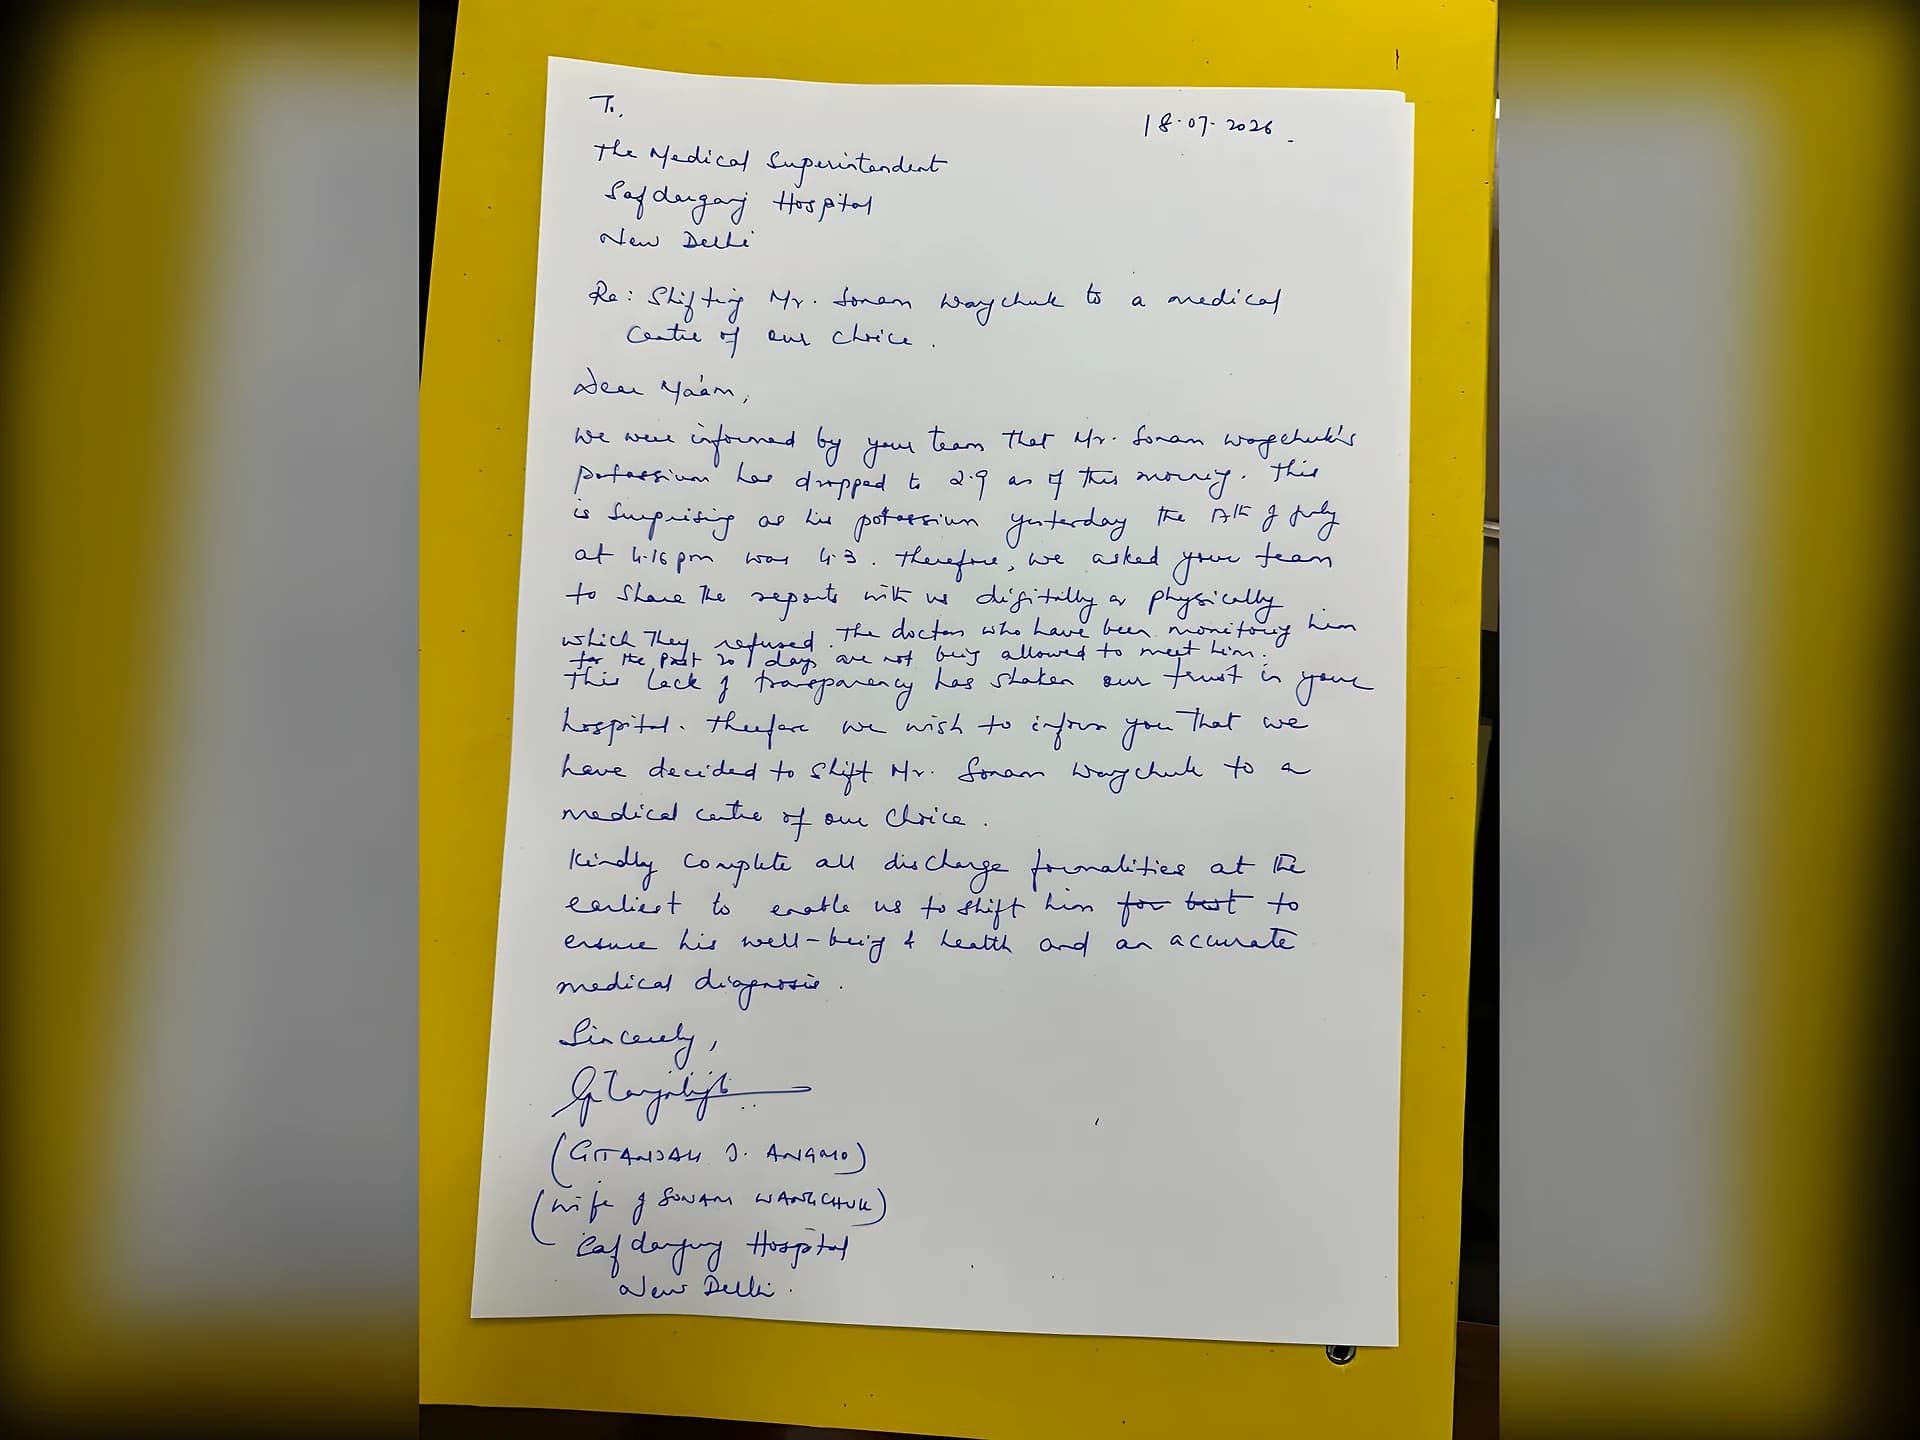 To,
18.07.2026
The Medical Superintendent
Safdarganj Hospital
New Delhi
Re: Shifting Mr. Sonam Wangchuk to a medical
centre of our choice.
Dear Ma'am,
We were informed by your team that Mr. Sonam Wangchuk's
potassium has dropped to 2.9 as of this morning. This
is surprising as his potassium yesterday the 17th of July
at 4.16 pm was 4.3. Therefore, we asked your team
to share the reports with us digitally or physically
which they refused. The doctors who have been monitoring him
for the past 20 days are not being allowed to meet him.
This lack of transparency has shaken our trust in your
hospital. Therefore we wish to inform you that we
have decided to shift Mr. Sonam Wangchuk to a
medical centre of our choice.
Kindly complete all discharge formalities at the
earliest to enable us to shift him for best to
ensure his well-being & health and an accurate
medical diagnosis.
Sincerely,
Gitanjali
(GITANJALI J. ANGMO)
(Wife of SONAM WANGCHUK)
Safdarjung Hospital
New Delhi.